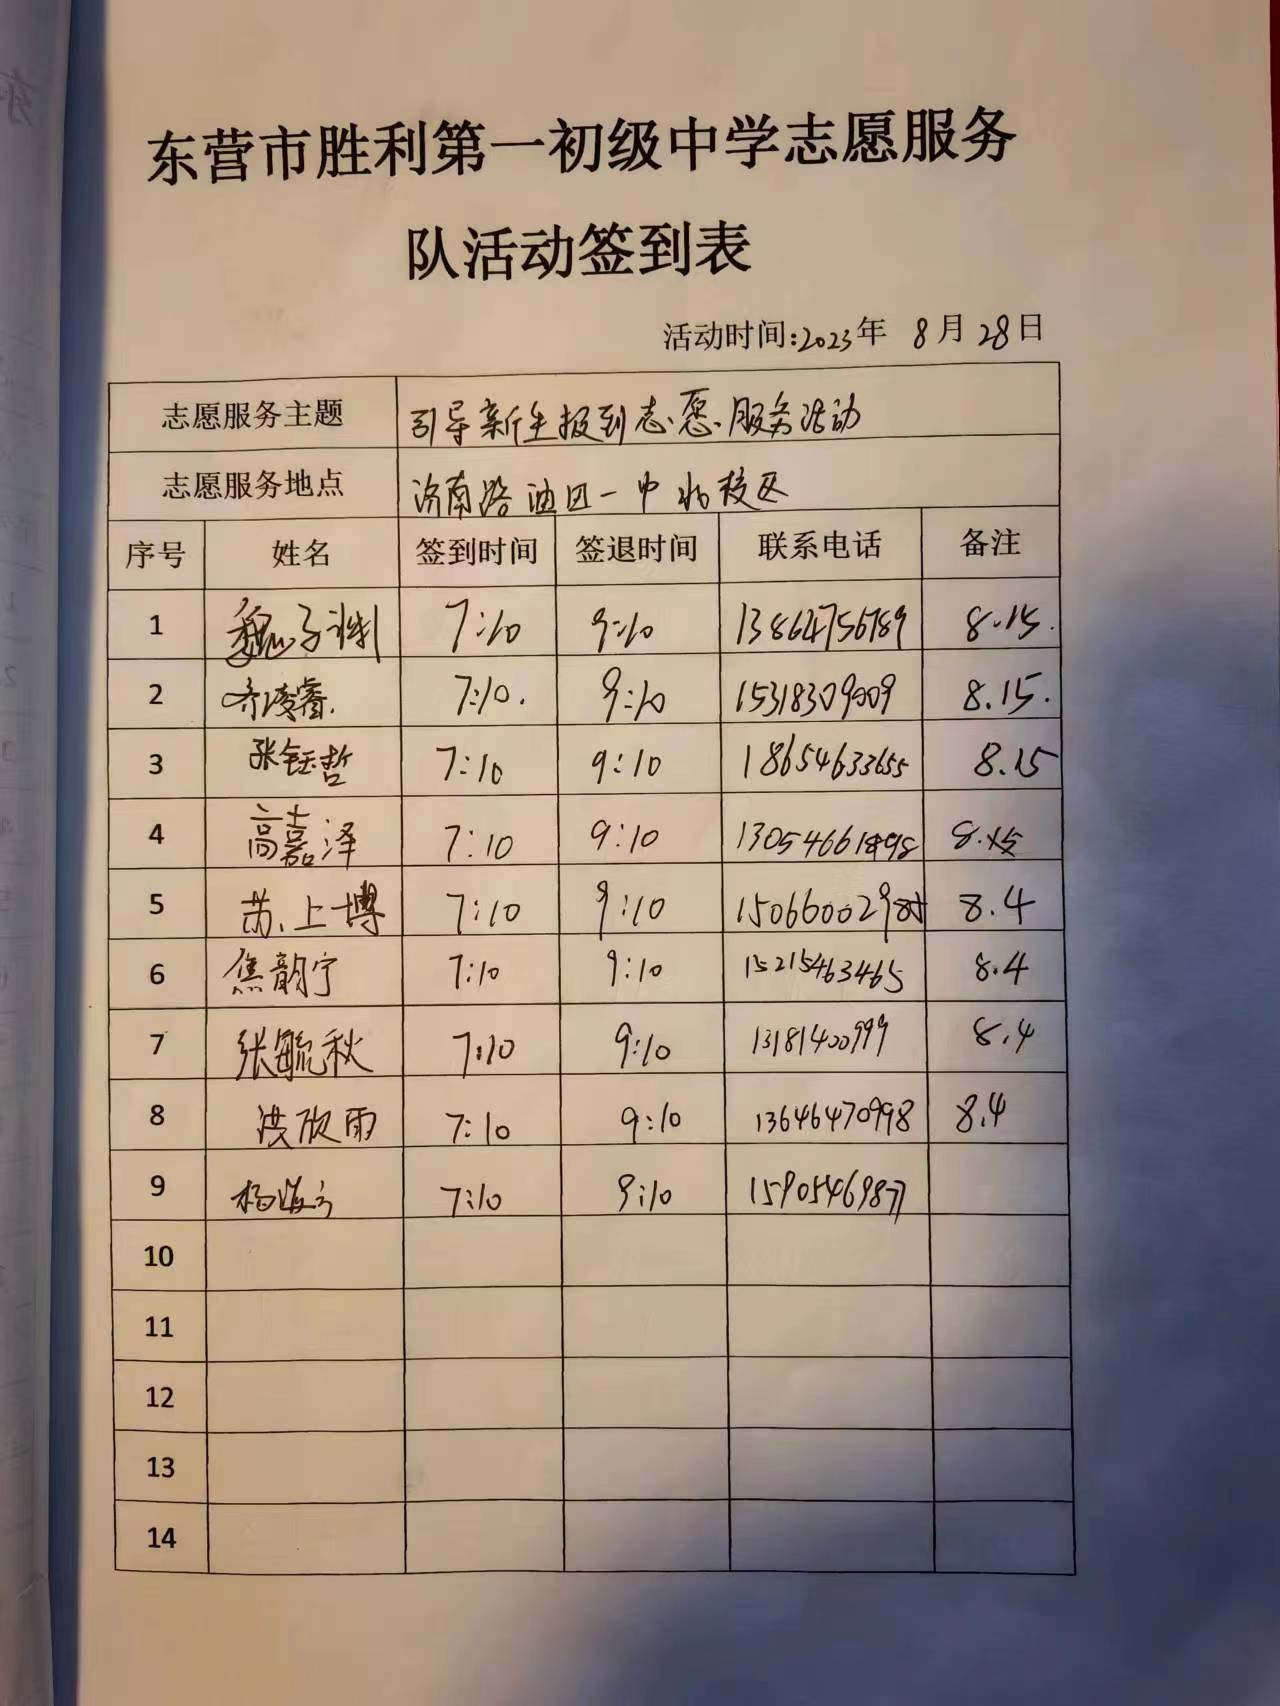 东营市胜利第一初级中学志愿服务
队活动签到表
活动时间:2023年 8月28日
志愿服务主题 引导新生报到志愿服务活动
志愿服务地点 济南路油田一中北校区
序号 姓名 签到时间 签退时间 联系电话 备注
1 魏子 7:10 9:10 13864756789 8.15.
2 齐凌睿. 7:10. 9:10 15318309009 8.15.
3 张钰哲 7:10 9:10 18654633655 8.15
4 高嘉泽 7:10 9:10 8.
5 苏上博 7:10 9:10 8.4
6 焦韵宁 7:10 9:10 15215463465 8.4
7 张毓秋 7:10 9:10 13181400999 8.4
8 洪欣雨 7:10 9:10 13646470998 8.4
9 杨 7:10 9:10 15905469877
10
11
12
13
14